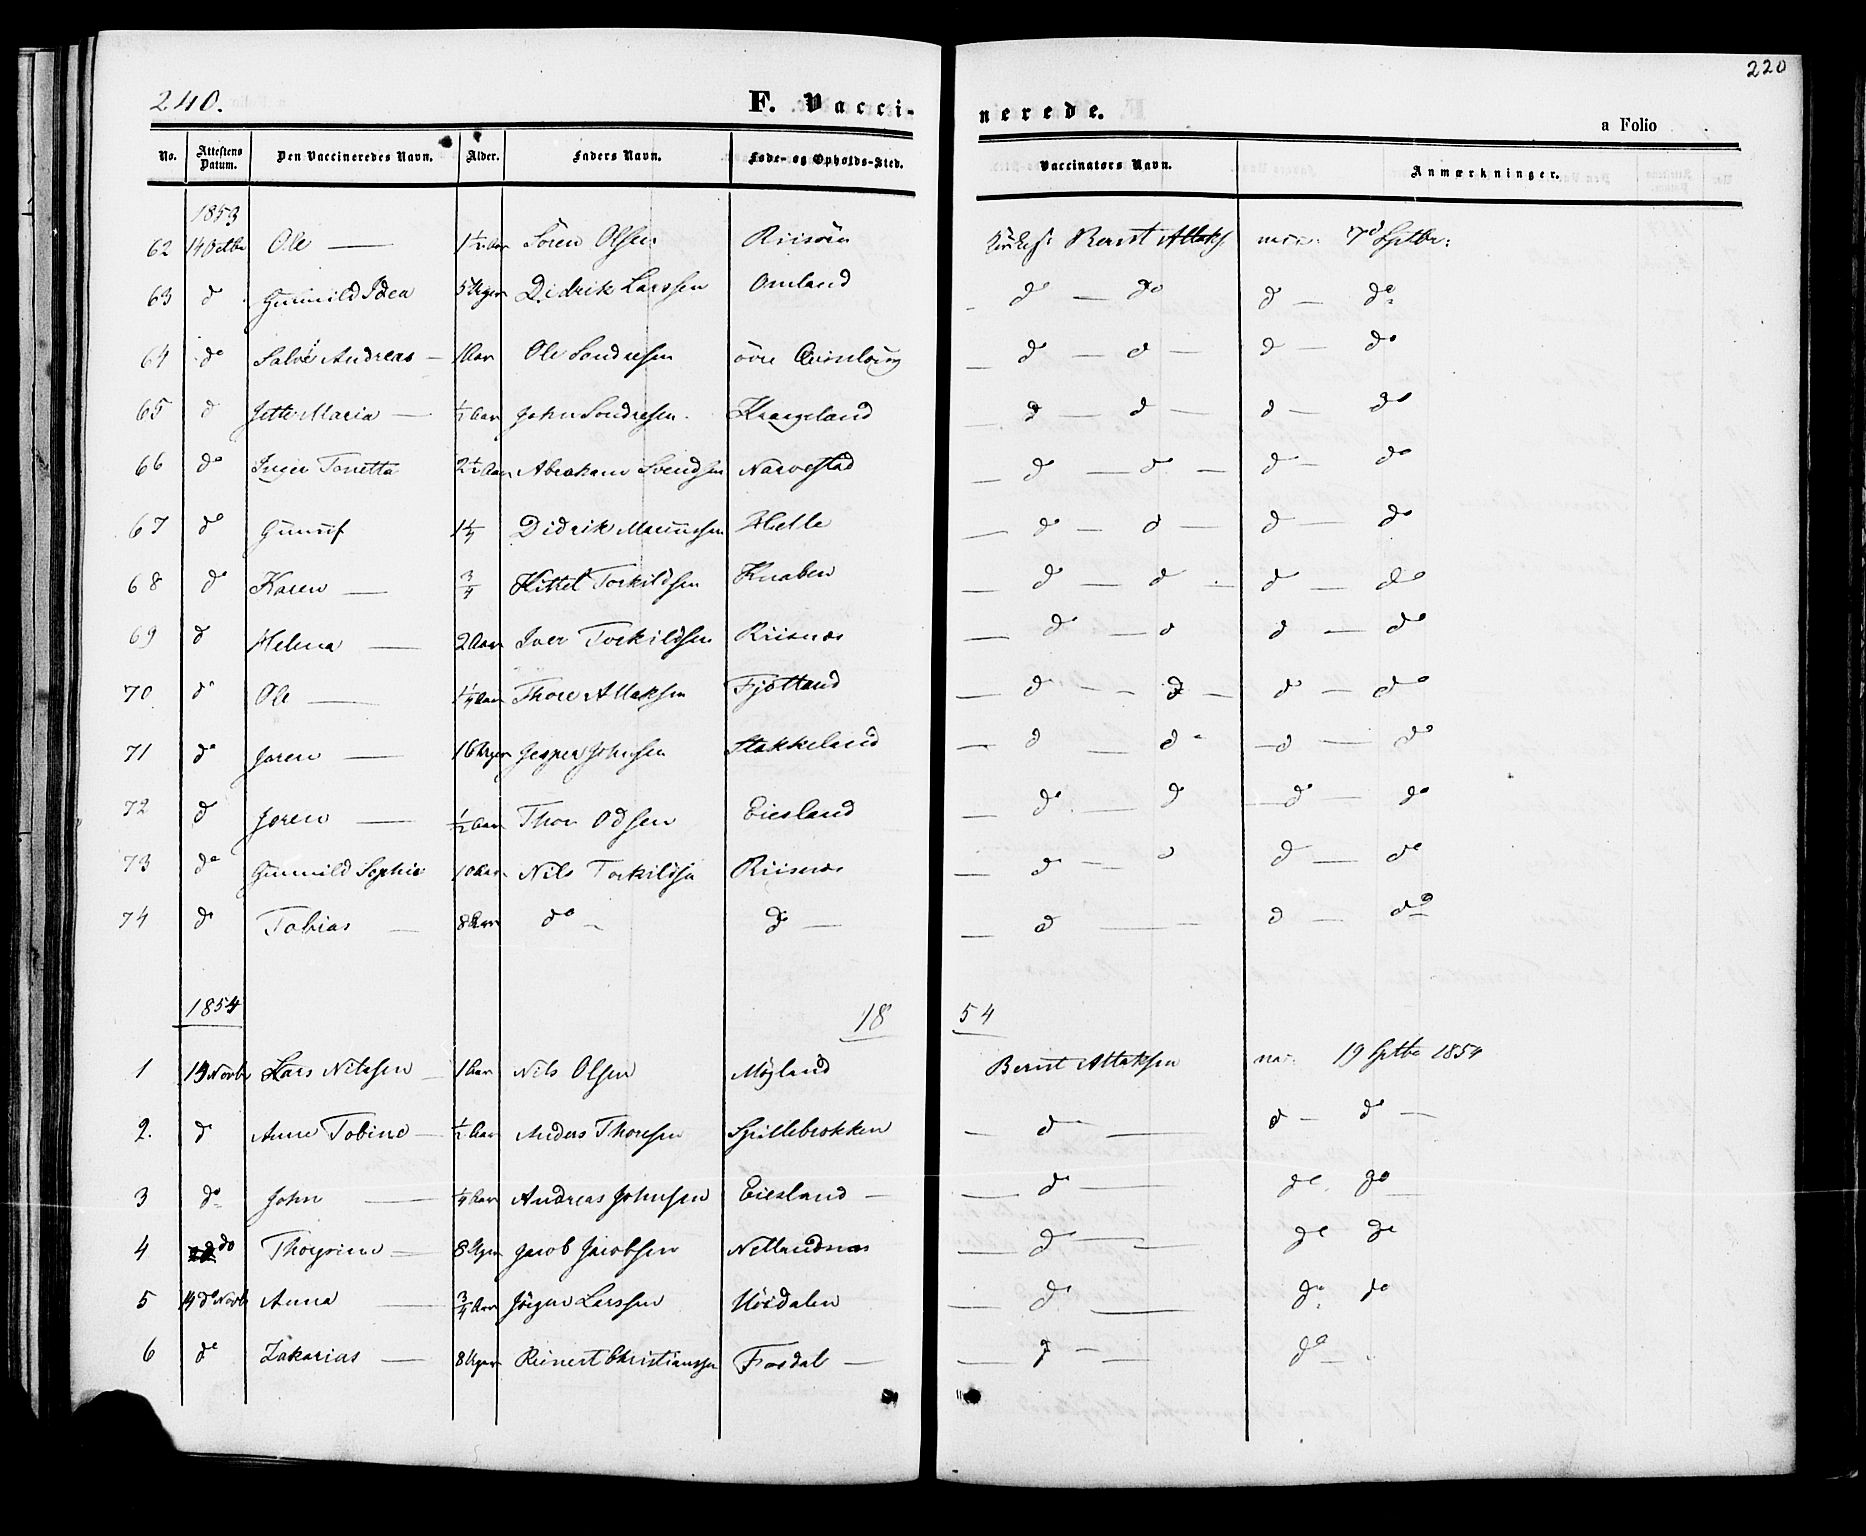 240.
F. Vacci-
nerede.
220
a Folio
No. Attestens Datum. Den Vaccineredes Navn. Alder. Faders Navn. Føde- og Opholds-Sted. Vaccinators Navn. Anmærkninger.
1853
62 14 Octbr Ole — 1½ Aar Sören Olsen Bernt Attaks. 7d Sptbr:
63 do Gunnild Idea 5 Uger Didrik Larssen Omland do — do do — do
64 do Salve Andreas — 1 Aar Ole Sondresen övre do — do — do — do
65 do Jette Maria — ½ Aar John Sondresen. Kraageland do — do — do — do
66 do Inger Tonetta 2½ Aar Abraham Svendsen Narvestad do — do — do — do
67 do Gunuf 1¼ Didrik Mariussen Helle do — do — do — do
68 do Karen — ¾ Kittel Torkildsen Knaben do — do do — do
69 do Helena — 2 Aar Iver Torkildsen Riisnæs do — do do — do
70 do Ole — 1¼ Aar Thore Attaksen Fjotland do — do — do — do
71 do Joren — 16 Uger Jesper Johnsen Stakkeland do — do do — do
72 do Joren — ½ Aar Thore Odsen Eiesland do — do do — do
73 do Gunnild Sophie 10 Aar Nils Torkildsen Riisnæs do — do do — do
74 do Tobias — 8 Aar do — do — do — do — do
1854
18 54
1 14 Novbr Lars Nilssen — 1 Aar Nils Olsen Mygland Bernt Attaksen 19 Sptbr 1854
2. do Anne Tobine — ½ Aar Anders Thoresen Spillebrokken do — do — do —
3 do John — ¼ Aar Andreas Johnsen Eiesland — do — do do
4 do Thorgrine — 8 Uger Jacob Jacobsen Netlandsnæs do — do do
5 14 do Novbr Anna — ¾ Aar Jörgen Larssen do — do do
6 do Zakarias — 8 Uger Reinert Christianssen Fosdal — do — do